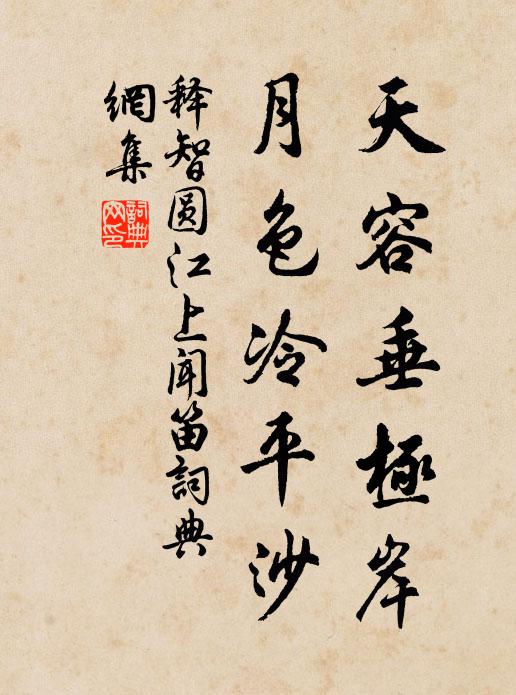 天容垂極岸
月色冷平沙
释智圆江上闻笛詞典
網集
詞典
网印